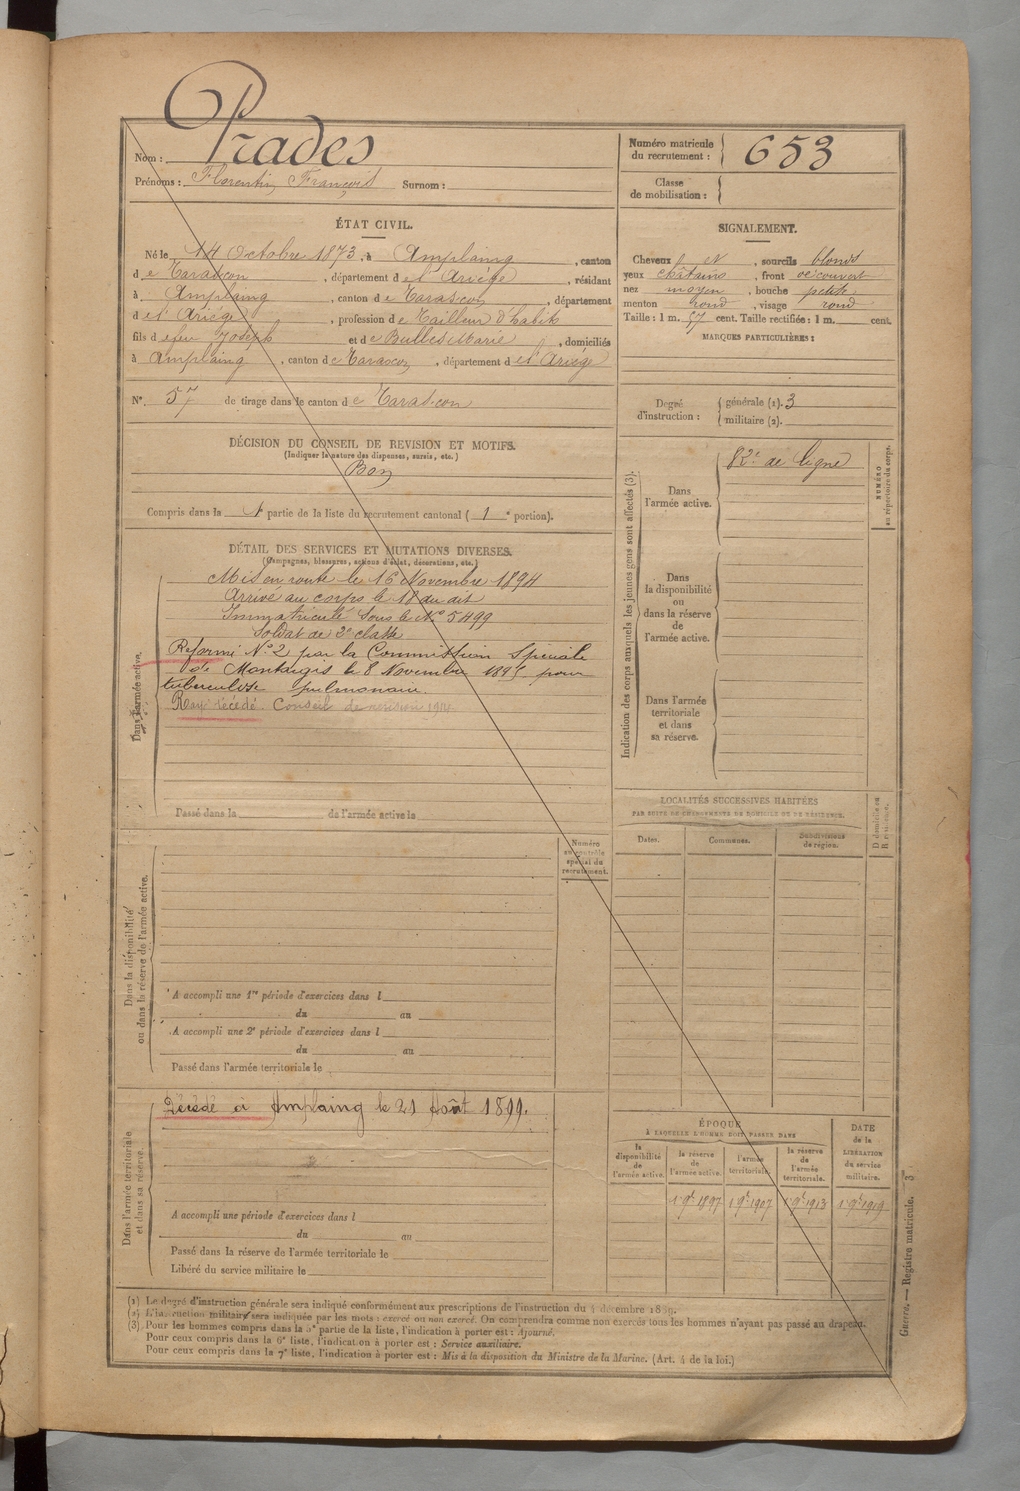 Nom : Prades
Prénoms : Florentin François Surnom :
Numéro matricule du recrutement : 653
Classe de mobilisation :
ÉTAT CIVIL.
Né le 14 Octobre 1873, à Amplaing, canton
de Tarascon, département de l'Ariège, résidant
à Amplaing, canton de Tarascon, département
de l'Ariège, profession de Tailleur d'habits
fils de feu Joseph et de Bulles Marie, domiciliés
à Amplaing, canton de Tarascon, département de l'Ariège
N° 57 de tirage dans le canton de Tarascon
SIGNALEMENT.
Cheveux et, sourcils blonds
yeux châtains, front découvert
nez moyen, bouche petite
menton rond, visage rond
Taille : 1 m. 57 cent. Taille rectifiée : 1 m. cent.
MARQUES PARTICULIÈRES :
Degré d'instruction : générale (1). 3
militaire (2).
DÉCISION DU CONSEIL DE REVISION ET MOTIFS.
(Indiquer la nature des dispenses, sursis, etc.)
Bon
Compris dans la 1 partie de la liste du recrutement cantonal (1e portion).
DÉTAIL DES SERVICES ET MUTATIONS DIVERSES.
(Campagnes, blessures, actions d'éclat, décorations, etc.)
Dans l'armée active.
Mis en route le 16 Novembre 1894
Arrivé au corps le 18 du dit
Immatriculé sous le N° 5499
Soldat de 2e classe
Réformé N° 2 par la Commission Spéciale
de Montargis le 8 Novembre 1895 pour
tuberculose pulmonaire.
Rayé décédé. Conseil de revision
Passé dans la de l'armée active le
Indication des corps auxquels les jeunes gens sont affectés (3).
NUMÉRO au répertoire du corps.
Dans l'armée active.
82e de ligne
Dans la disponibilité ou dans la réserve de l'armée active.
Dans l'armée territoriale et dans sa réserve.
LOCALITÉS SUCCESSIVES HABITÉES
PAR SUITE DE CHANGEMENTS DE DOMICILE OU DE RÉSIDENCE.
Dates. Communes. Subdivisions de région. D domicile ou R résidence.
Numéro au contrôle spécial du recrutement.
Dans la disponibilité ou dans la réserve de l'armée active.
A accompli une 1re période d'exercices dans l
du au
A accompli une 2e période d'exercices dans l
du au
Passé dans l'armée territoriale le
Dans l'armée territoriale et dans sa réserve.
Décédé à Amplaing le 21 Août 1899.
A accompli une période d'exercices dans l
du au
Passé dans la réserve de l'armée territoriale le
Libéré du service militaire le
ÉPOQUE
À LAQUELLE L'HOMME DOIT PASSER DANS
la disponibilité de l'armée active. la réserve de l'armée active. l'armée territoriale. la réserve de l'armée territoriale. DATE de la LIBÉRATION du service militaire.
1 9bre 1897 1 9bre 1907 1 9bre 1913 1 9bre 1919
Guerre. — Registre matricule. — 3
(1) Le degré d'instruction générale sera indiqué conformément aux prescriptions de l'instruction du 4 décembre 1889.
(2) L'instruction militaire sera indiquée par les mots : exercé ou non exercé. On comprendra comme non exercés tous les hommes n'ayant pas passé au drapeau.
(3) Pour les hommes compris dans la 5e partie de la liste, l'indication à porter est : Ajourné.
Pour ceux compris dans la 6e liste, l'indication à porter est : Service auxiliaire.
Pour ceux compris dans la 7e liste, l'indication à porter est : Mis à la disposition du Ministre de la Marine. (Art. 4 de la loi.)